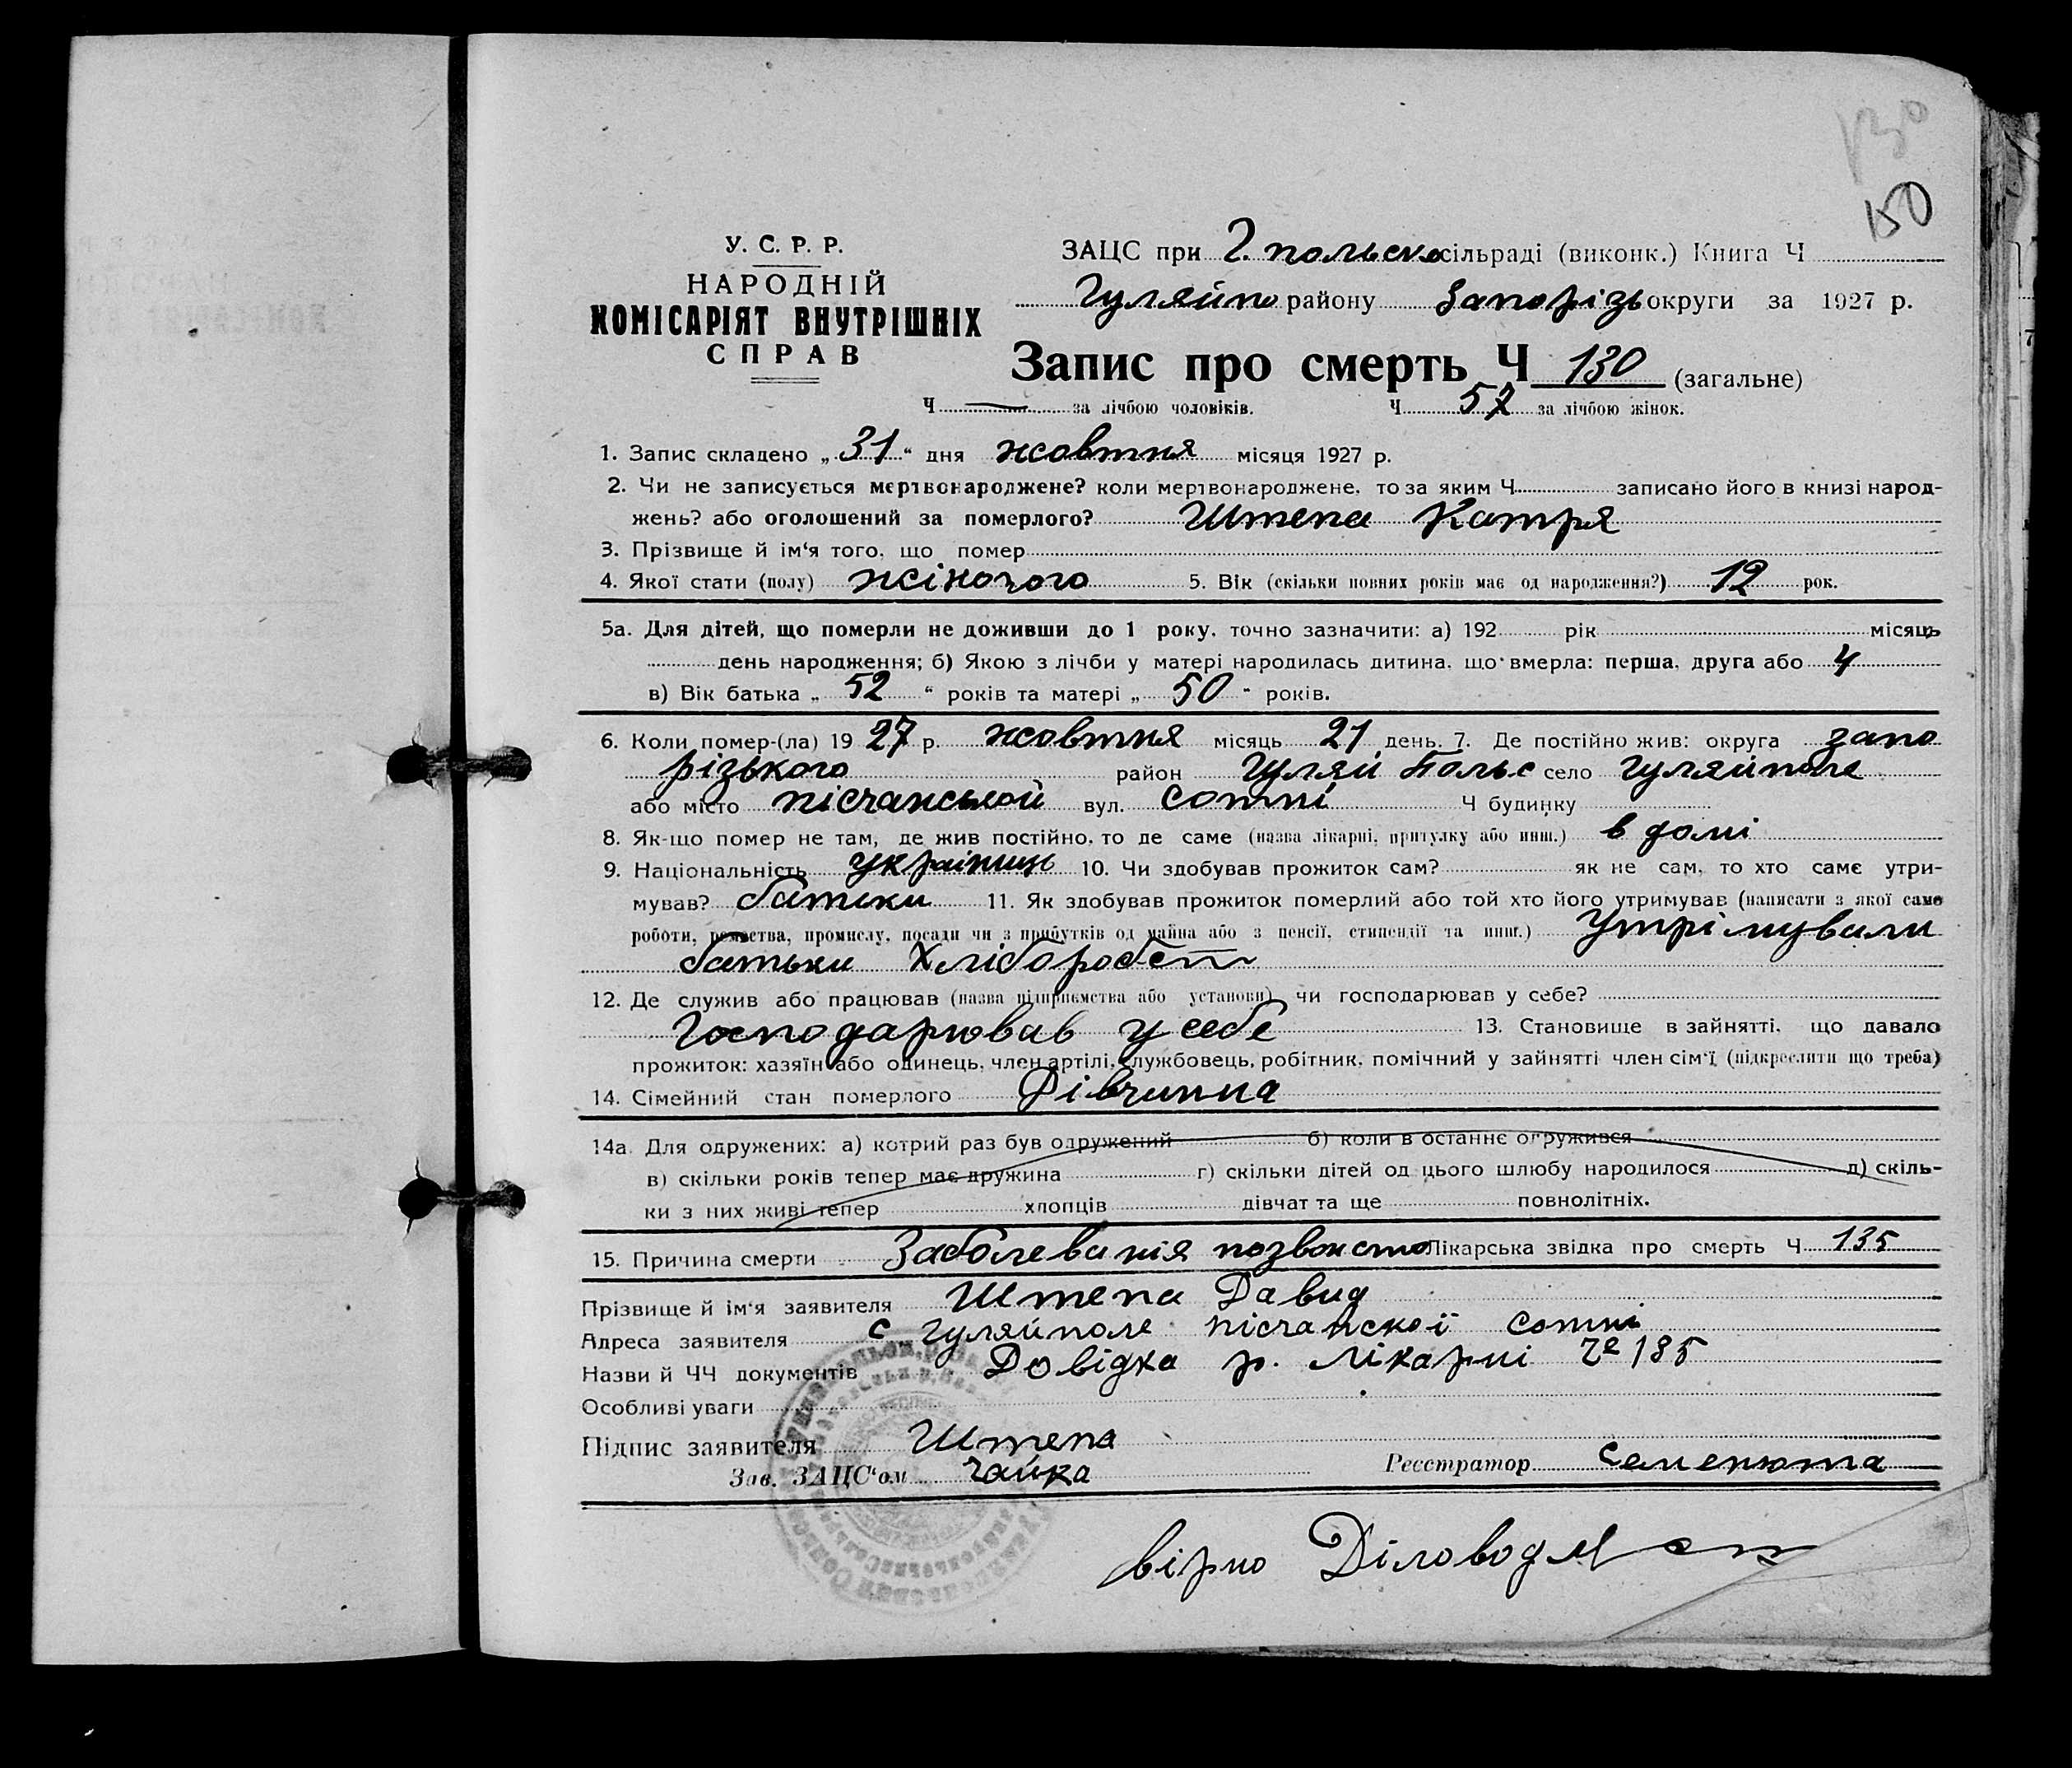 130
150
У. С. Р. Р.
НАРОДНІЙ
КОМІСАРІЯТ ВНУТРІШНІХ
СПРАВ
ЗАЦС при Г. польско сільраді (виконк.) Книга Ч
Гуляйпо району Запорізь округи за 1927 р.
Запис про смерть Ч 130 (загальне)
Ч — за лічбою чоловіків. Ч 57 за лічбою жінок.
1. Запис складено „ 31 “ дня жовтня місяця 1927 р.
2. Чи не записується мертвонароджене? коли мертвонароджене, то за яким Ч записано його в книзі народ-
жень? або оголошений за померлого? Штепа Катря
3. Прізвище й ім‘я того, що помер
4. Якої стати (полу) жіночого 5. Вік (скільки повних років має од народження?) 12 рок.
5а. Для дітей, що померли не доживши до 1 року, точно зазначити: а) 192 рік місяць
день народження; б) Якою з лічби у матері народилась дитина, що вмерла: перша, друга або 4
в) Вік батька „ 52 “ років та матері „ 50 “ років.
6. Коли помер-(ла) 19 27 р. жовтня місяць 21 день. 7. Де постійно жив: округа запо
різького район Гуляй Польс село Гуляйполе
або місто пісчанської вул. сотні Ч будинку
8. Як-що помер не там, де жив постійно, то де саме (назва лікарні, притулку або инш.) в домі
9. Національність українць 10. Чи здобував прожиток сам? як не сам, то хто саме утри-
мував? батьки 11. Як здобував прожиток померлий або той хто його утримував (написати з якої саме
роботи, ремества, промислу, посади чи з прибутків од майна або з пенсії, стипендії та инш.) Утрімували
батьки Хлібороб
12. Де служив або працював (назва підприємства або установи) чи господарював у себе?
Господарював у себе 13. Становище в зайнятті, що давало
прожиток: хазяїн або одинець, член артілі, службовець, робітник, помічний у зайнятті член сім‘ї (підкреслити що треба)
14. Сімейний стан померлого Дівчинна
14а. Для одружених: а) котрий раз був одружений б) коли в останнє одружився
в) скільки років тепер має дружина г) скільки дітей од цього шлюбу народилося д) скіль-
ки з них живі тепер хлопців дівчат та ще повнолітніх.
15. Причина смерти Заболеванія Лікарська звідка про смерть Ч 135
Прізвище й ім‘я заявителя Штепа Давид
Адреса заявителя с Гуляйполе пісчанскої сотні
Назви й ЧЧ документів Довідка р. лікарні 135
Особливі уваги
Підпис заявителя Штепа
Зав. ЗАЦС‘ом Чайка Реєстратор Семенюта
вірно Діловод